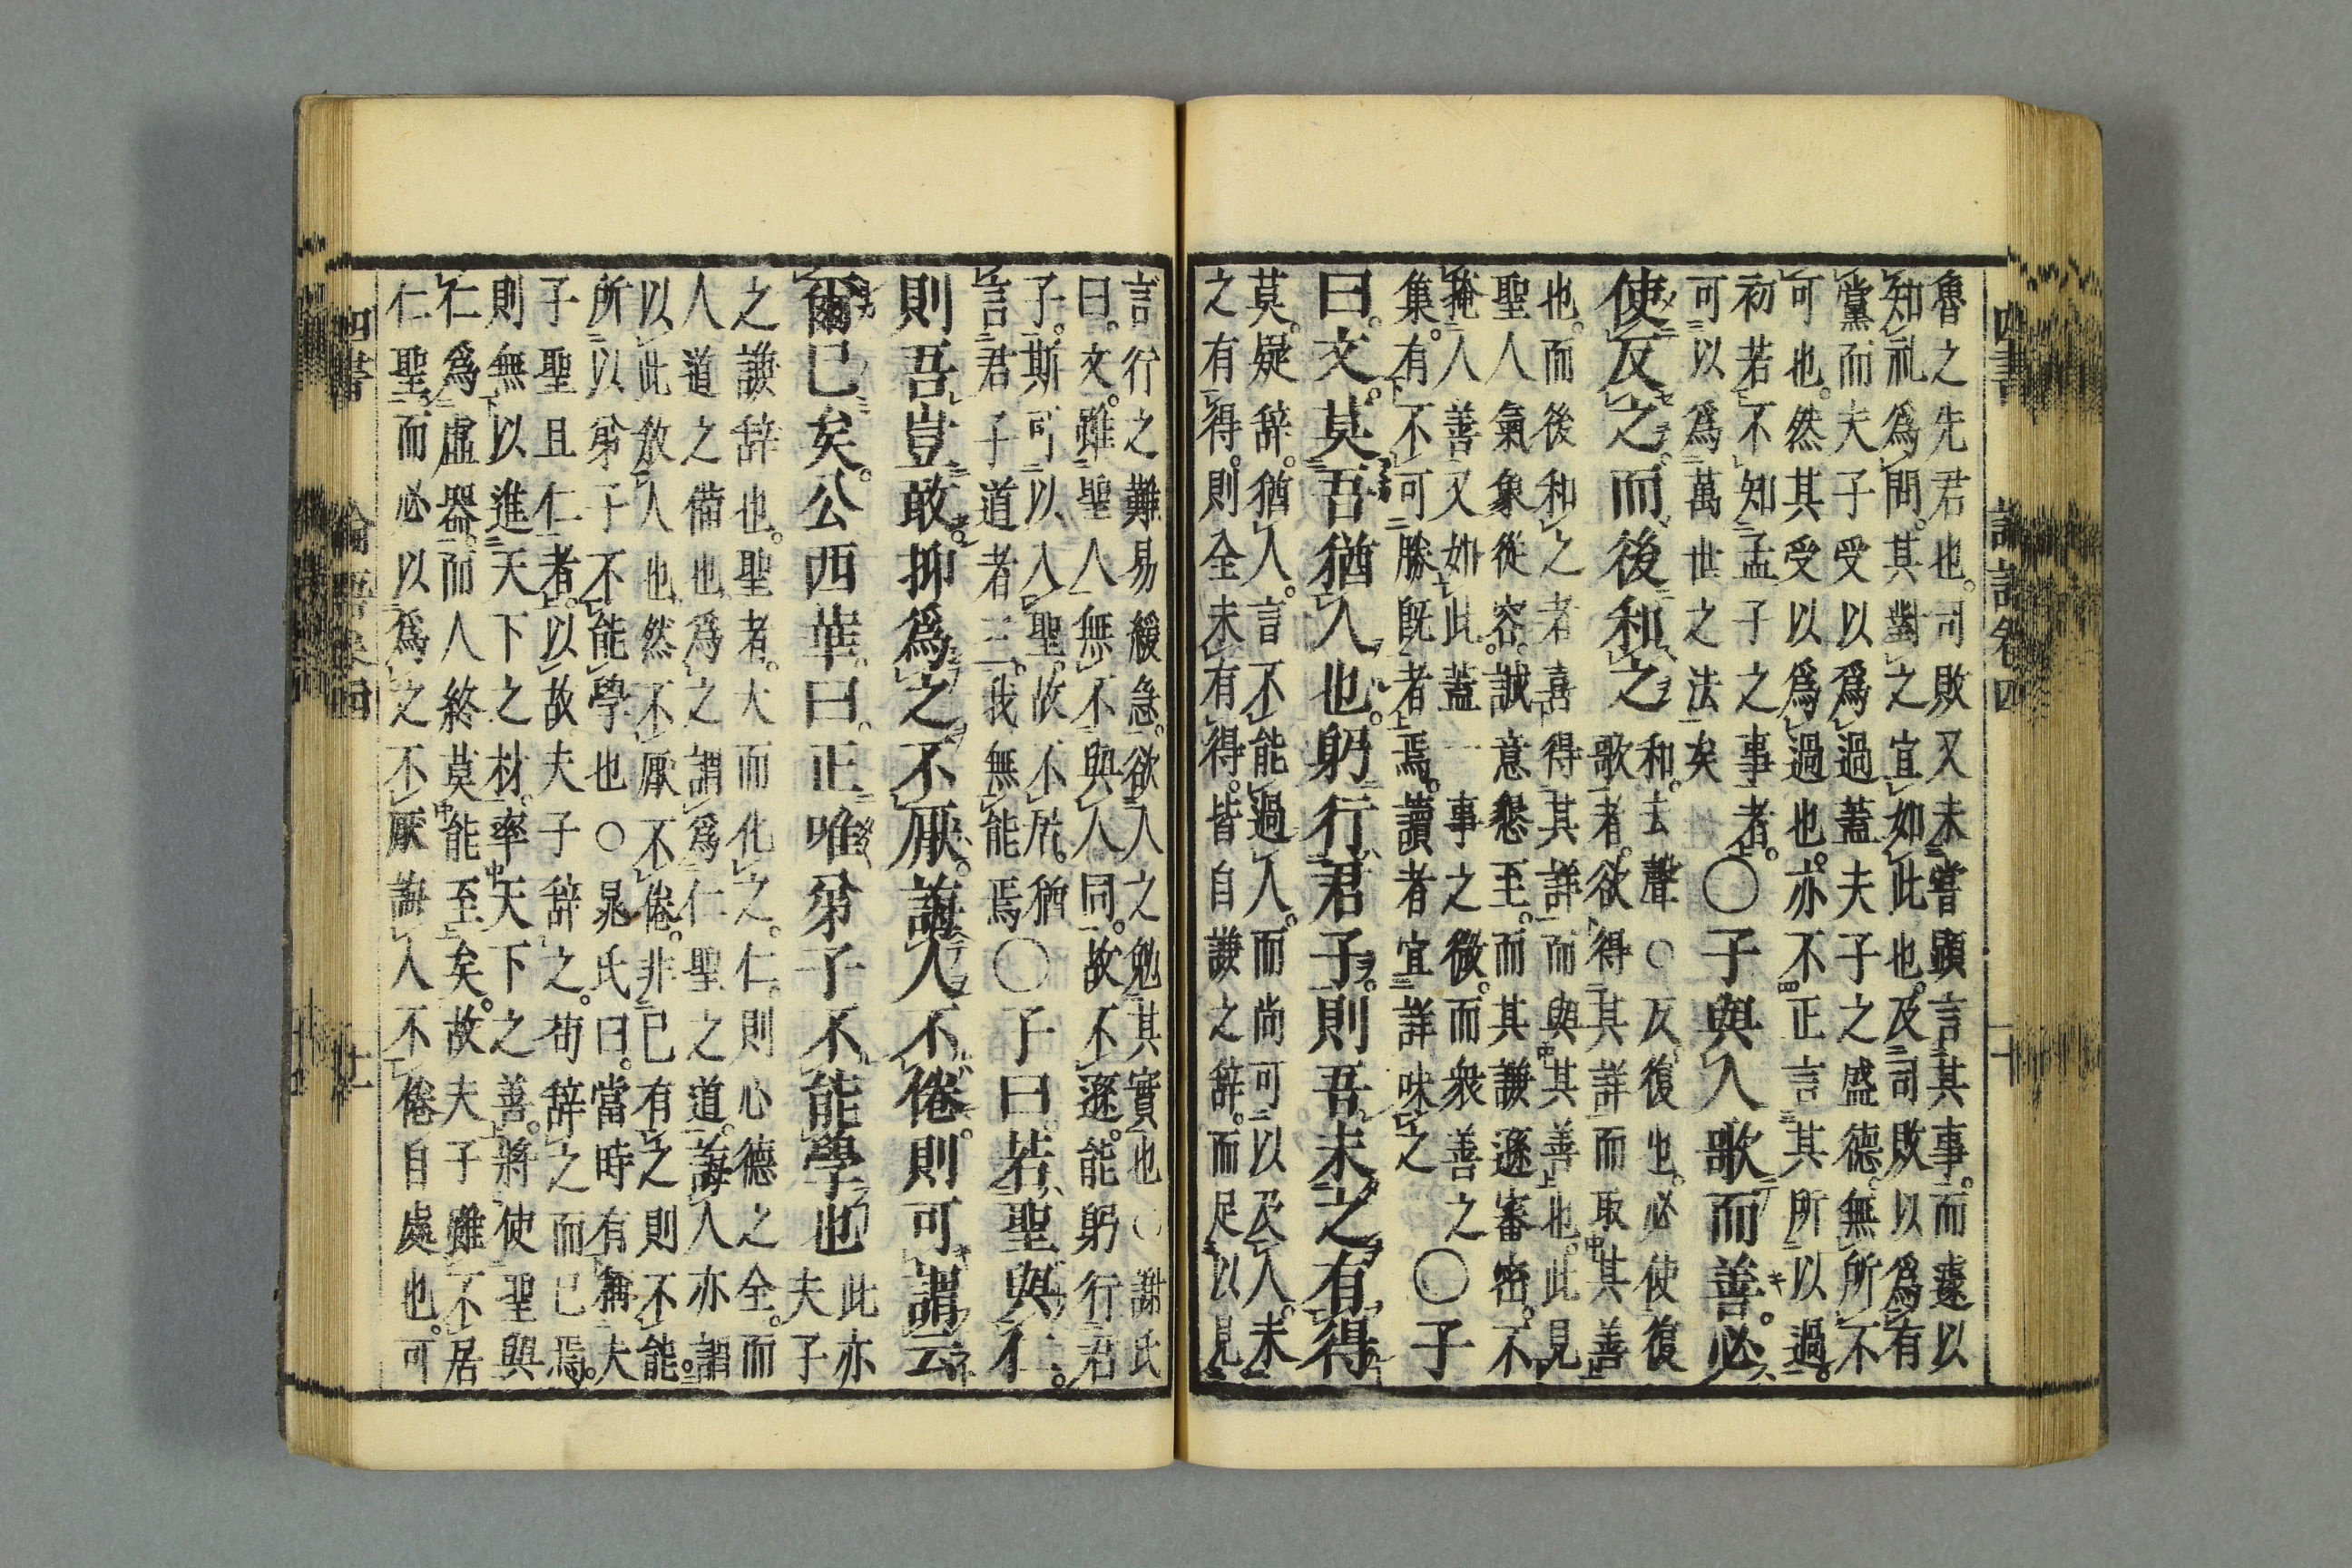 魯之先君也。司敗又未嘗顯言其事。而遽以
知禮爲問。其對之宜如此也。及司敗以爲有
黨而夫子受以爲過。蓋夫子之盛德。無所不
可也。然其受以爲過也。亦不正言其所以過。
初若不知孟子之事者。
可以爲萬世之法矣
○子與人歌而善。必
使反之。而後和之
和。去聲○反。復也。必使復
歌者。欲得其詳而取其善
也。而後和之者喜得其詳而與其善也。此見
聖人氣象從容。誠意懇至。而其謙遜審密。不
掩人善又如此。蓋一事之微。而衆善之
集。有不可勝既者焉。讀者宜詳味之
○子
曰。文。莫吾猶人也。躬行君子。則吾未之有得
莫。疑辭。猶人。言不能過人。而尚可以及人。未
之有得。則全未有得。皆自謙之辭。而足以見
言行之難易緩急。欲人之勉其實也○謝氏
曰。文。雖聖人無不與人同。故不遜。能躬行君
子。斯可以入聖。故不居。猶
言君子道者三。我無能焉
○子曰。若聖與仁。
則吾豈敢。抑爲之不厭。誨人不倦。則可謂云
爾已矣。公西華曰。正唯弟子不能學也
此亦
夫子
之謙辭也。聖者。大而化之。仁。則心德之全。而
人道之備也。爲之謂爲仁聖之道。誨人亦謂
以此教人也。然不厭不倦。非已有之則不能。
所以弟子不能學也○晁氏曰。當時有稱夫
子聖且仁者。以故夫子辭之。苟辭之而已焉。
則無以進天下之材。率天下之善。將使聖與
仁爲虛器。而人終莫能至矣。故夫子雖不居
仁聖而必以爲之不厭誨人不倦自處也。可
四書
論語卷四
十
四書
論語卷四
十一